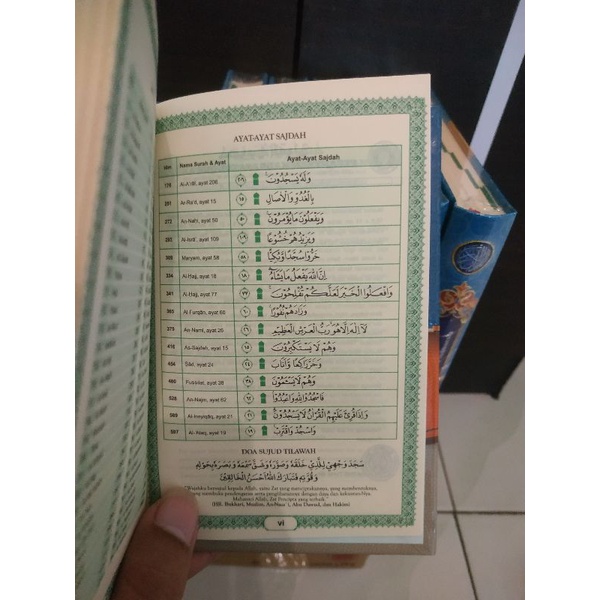 AYAT-AYAT SAJDAH
Hlm Nama Surah & Ayat Ayat-Ayat Sajdah
176 Al-A'râf, ayat 206 وَلَهُ يَسْجُدُوْنَ ٢٠٦
251 Ar-Ra'd, ayat 15 بِالْغُدُوِّ وَالْاٰصَالِ ١٥
272 An-Nahl, ayat 50 وَيَفْعَلُوْنَ مَا يُؤْمَرُوْنَ ٥٠
293 Al-Isrâ', ayat 109 وَيَزِيْدُهُمْ خُشُوْعًا ١٠٩
309 Maryam, ayat 58 خَرُّوْا سُجَّدًا وَّبُكِيًّا ٥٨
334 Al-Hajj, ayat 18 اِنَّ اللّٰهَ يَفْعَلُ مَا يَشَاۤءُ ١٨
341 Al-Hajj, ayat 77 وَافْعَلُوا الْخَيْرَ لَعَلَّكُمْ تُفْلِحُوْنَ ٧٧
365 Al-Furqân, ayat 60 وَزَادَهُمْ نُفُوْرًا ٦٠
379 An-Naml, ayat 26 لَآ اِلٰهَ اِلَّا هُوَ رَبُّ الْعَرْشِ الْعَظِيْمِ ٢٦
416 As-Sajdah, ayat 15 وَهُمْ لَا يَسْتَكْبِرُوْنَ ١٥
454 Sâd, ayat 24 وَخَرَّ رَاكِعًا وَّاَنَابَ ٢٤
480 Fussilat, ayat 38 وَهُمْ لَا يَسْـَٔمُوْنَ ٣٨
528 An-Najm, ayat 62 فَاسْجُدُوْا لِلّٰهِ وَاعْبُدُوْا ٦٢
589 Al-Insyiqâq, ayat 21 وَاِذَا قُرِئَ عَلَيْهِمُ الْقُرْاٰنُ لَا يَسْجُدُوْنَ ٢١
597 Al-'Alaq, ayat 19 وَاسْجُدْ وَاقْتَرِبْ ١٩
DOA SUJUD TILAWAH
سَجَدَ وَجْهِيَ لِلَّذِيْ خَلَقَهُ وَصَوَّرَهُ وَشَقَّ سَمْعَهُ وَبَصَرَهُ بِحَوْلِهِ
وَقُوَّتِهِ فَتَبَارَكَ اللّٰهُ اَحْسَنُ الْخَالِقِيْنَ
"Wajahku bersujud kepada Allah, yaitu Zat yang menciptakannya, yang membentuknya,
yang membuka pendengaran serta penglihatannya dengan daya dan kekuatan-Nya.
Mahasuci Allah, Zat Pencipta yang terbaik."
(HR. Bukhari, Muslim, An-Nasa'i, Abu Dawud, dan Hakim)
vi